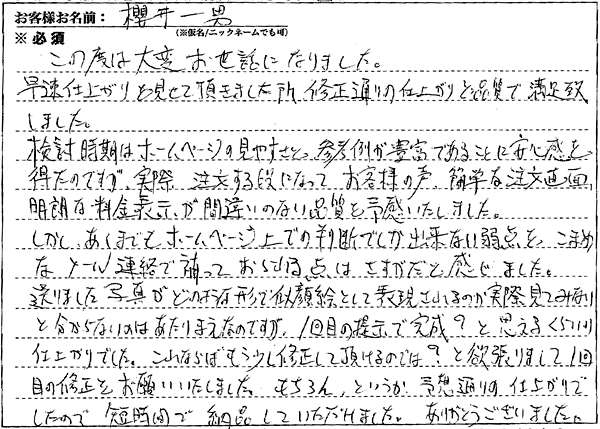 お客様お名前： 櫻井一男
※必須 （※仮名/ニックネームでも可）
この度は大変お世話になりました。
早速仕上がりを見せて頂きました所、修正通りの仕上がりと品質で満足致
しました。
検討時期はホームページの見やすさと、参考例が豊富であることに安心感を
得たのですが、実際、注文する段になって お客様の声、簡単な注文画面、
明朗な料金表示、が間違いのない品質を予感いたしました。
しかし、あくまでもホームページ上での判断でしか出来ない弱点を、こまめ
なメール連絡で補っておられる点はさすがだと感じました。
送りました写真がどのような形で似顔絵として表現されるのか実際見てみない
と分からないのはあたりまえなのですが、1回目の提示で完成？と思えるくらいの
仕上がりでした。これならばもう少し修正して頂けるのでは？と欲張りまして1回
目の修正をお願いいたしました。もちろん、というか予想通りの仕上がりで
したので 短時間で 納品していただけました。 ありがとうございました。